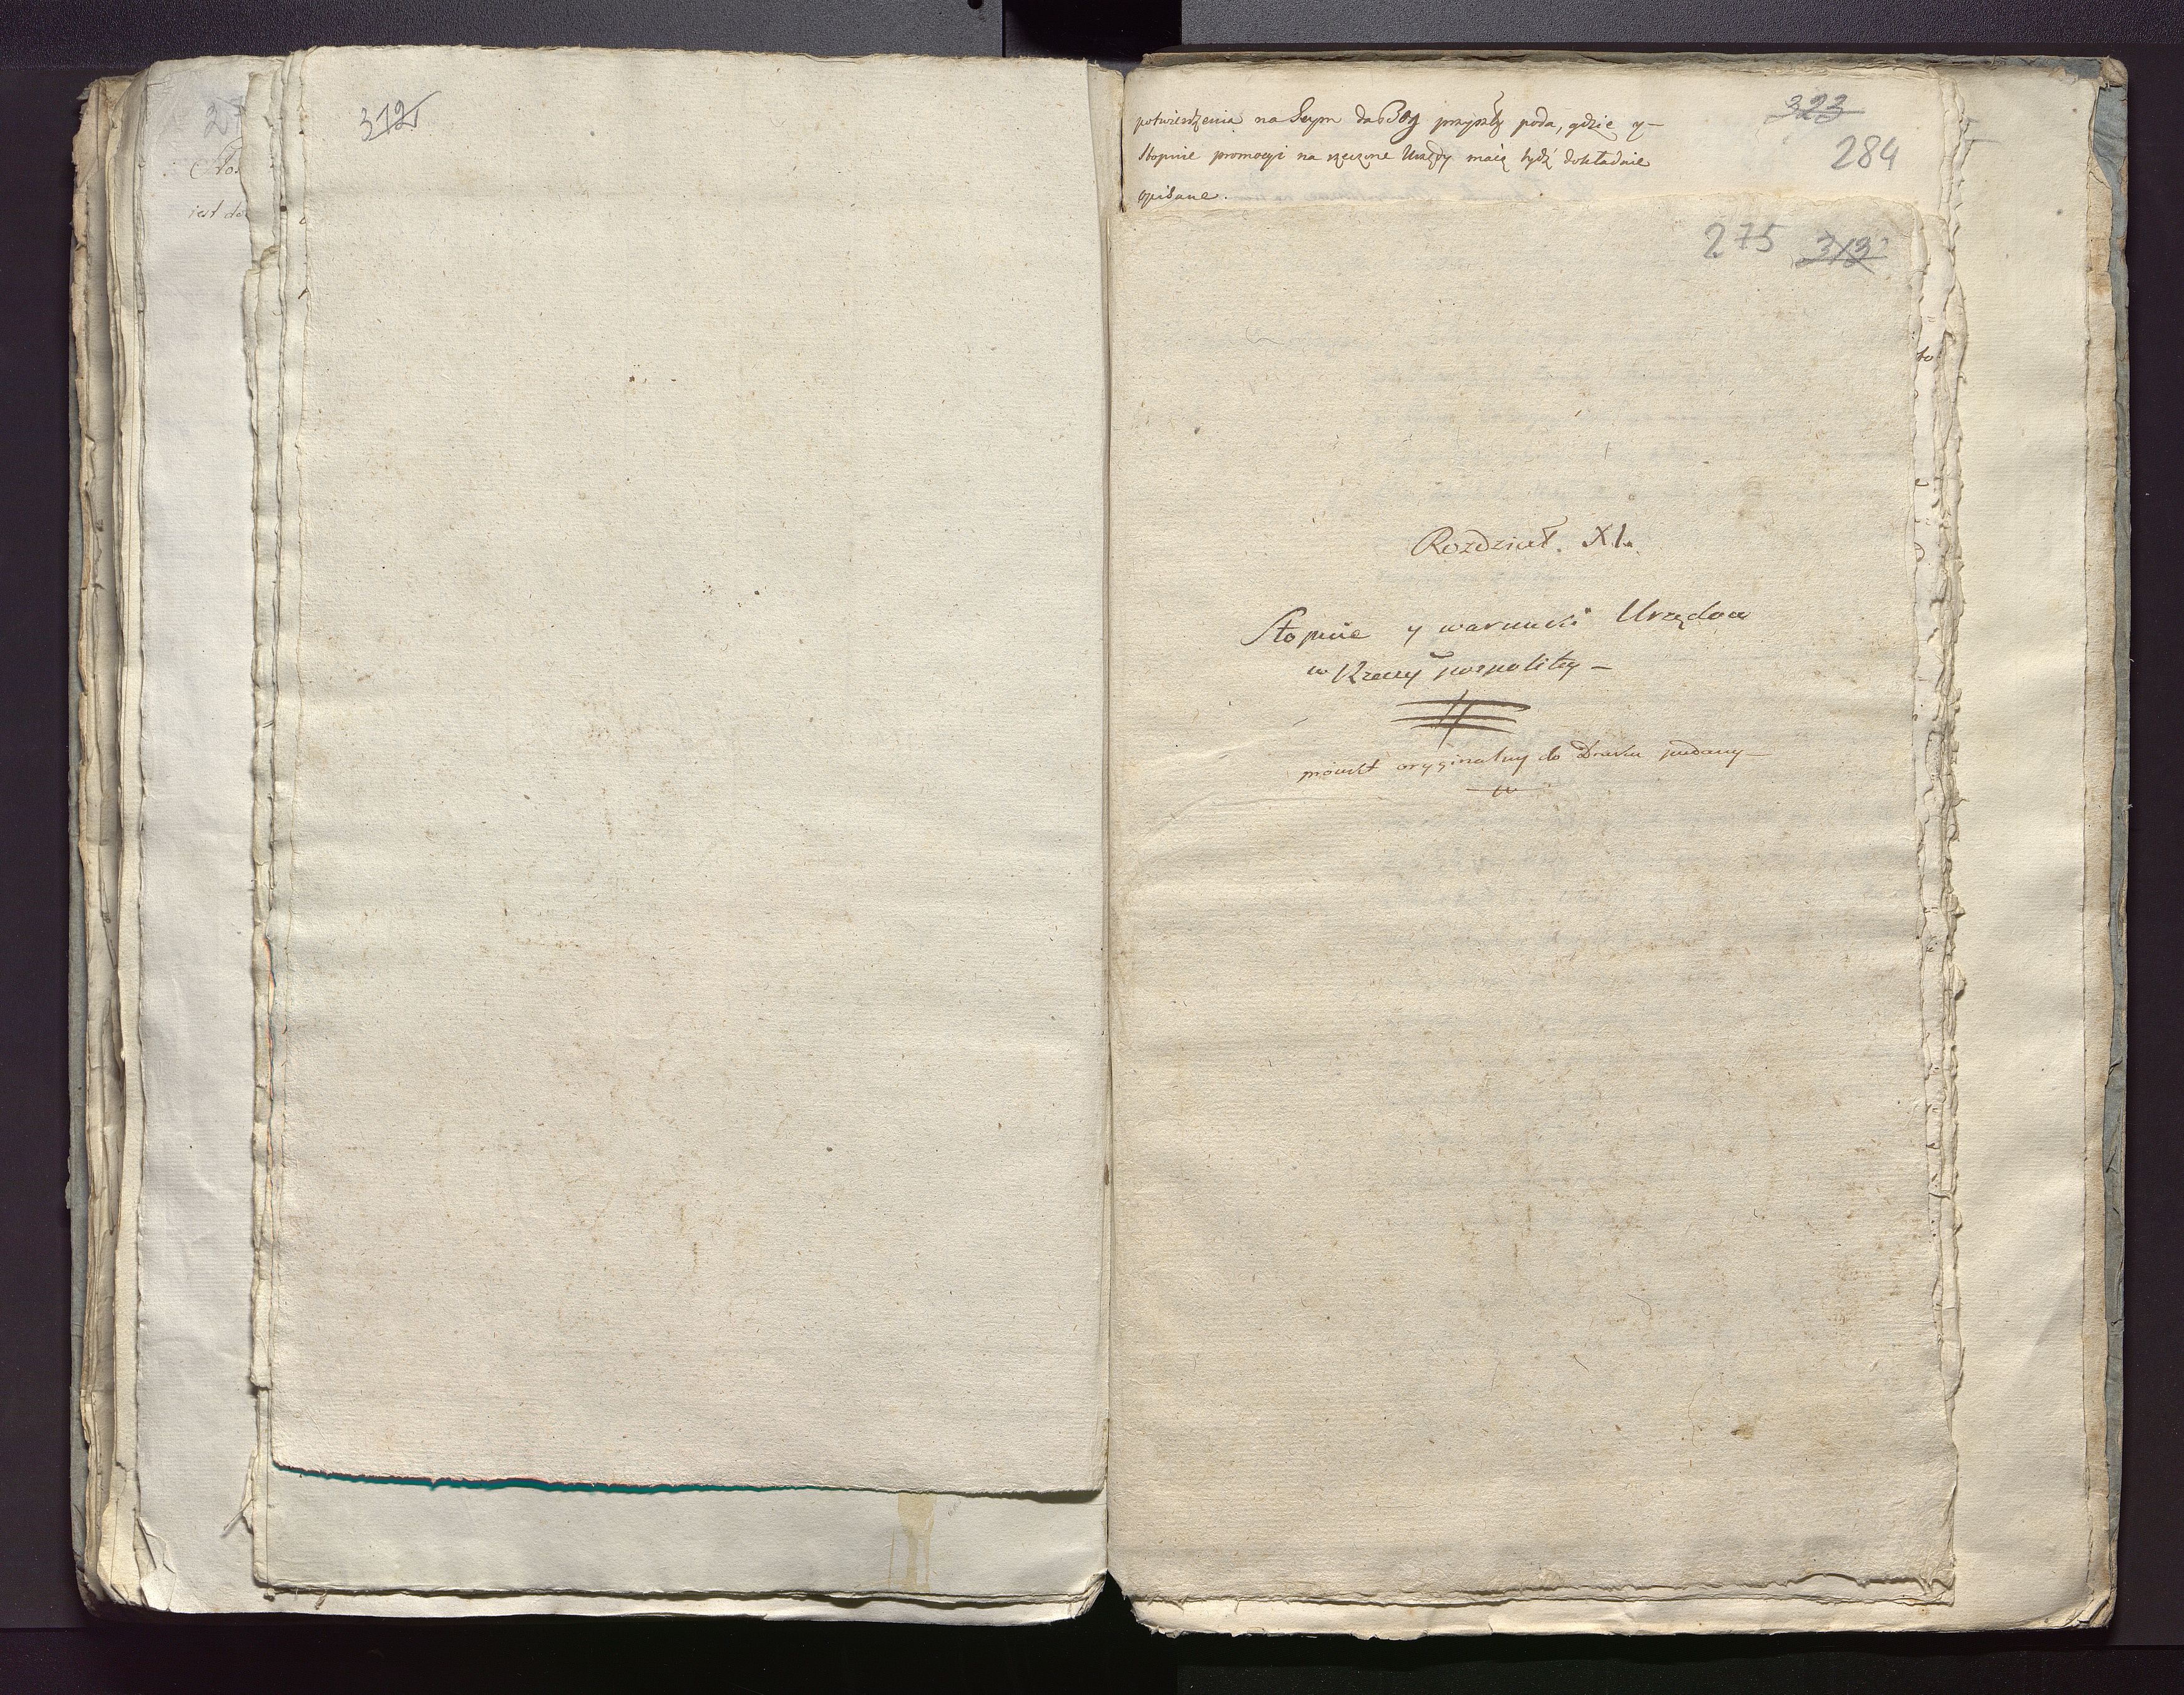 312
potwierdzenia na Seym da Bóg przyszły poda, gdzie y
stopnie promocyi na rzeczone Urzędy maią bydź dokładnie
opisane.
323
284
275 313
Rozdział. XI.
Stopnie y warunki Urzędow
w Rzeczypospolitey
proiekt oryginalny do Druku podany
iest